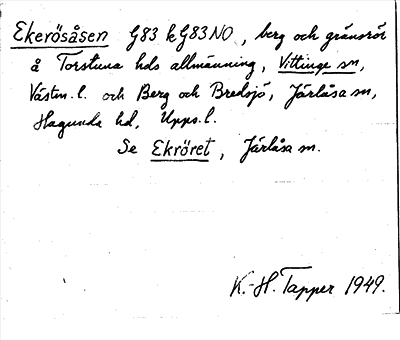 Ekerösåsen G83 k G83NO, berg och gränsrör
å Torstuna hds allmänning, Vittinge sn,
Västm. l. och Berg och Bredsjö, Järlåsa sn,
Hagunda hd, Upps. l.
Se Ekröret, Järlåsa sn.
K.-H. Tapper 1949.